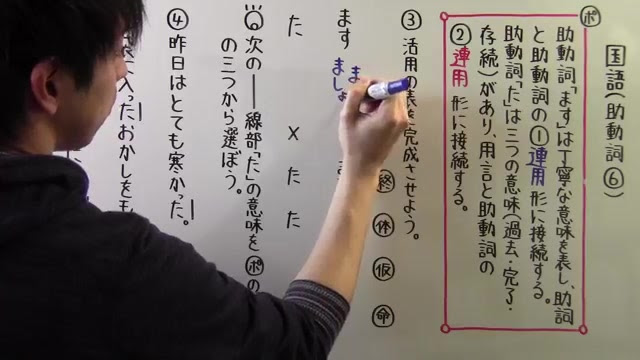 国語(助動詞⑥)
ポ
助動詞「ます」は丁寧な意味を表し、助詞
と助動詞の①連用形に接続する。
助動詞「た」は三つの意味(過去・完了・
存続)があり、用言と助動詞の
②連用形に接続する。
③活用の表を完成させよう。
終 体 仮 命
ます ましょ ま
た × た た
Q次の――線部「た」の意味を
ポの三つから選ぼう。
④昨日はとても寒かった。
に入ったおかしをも